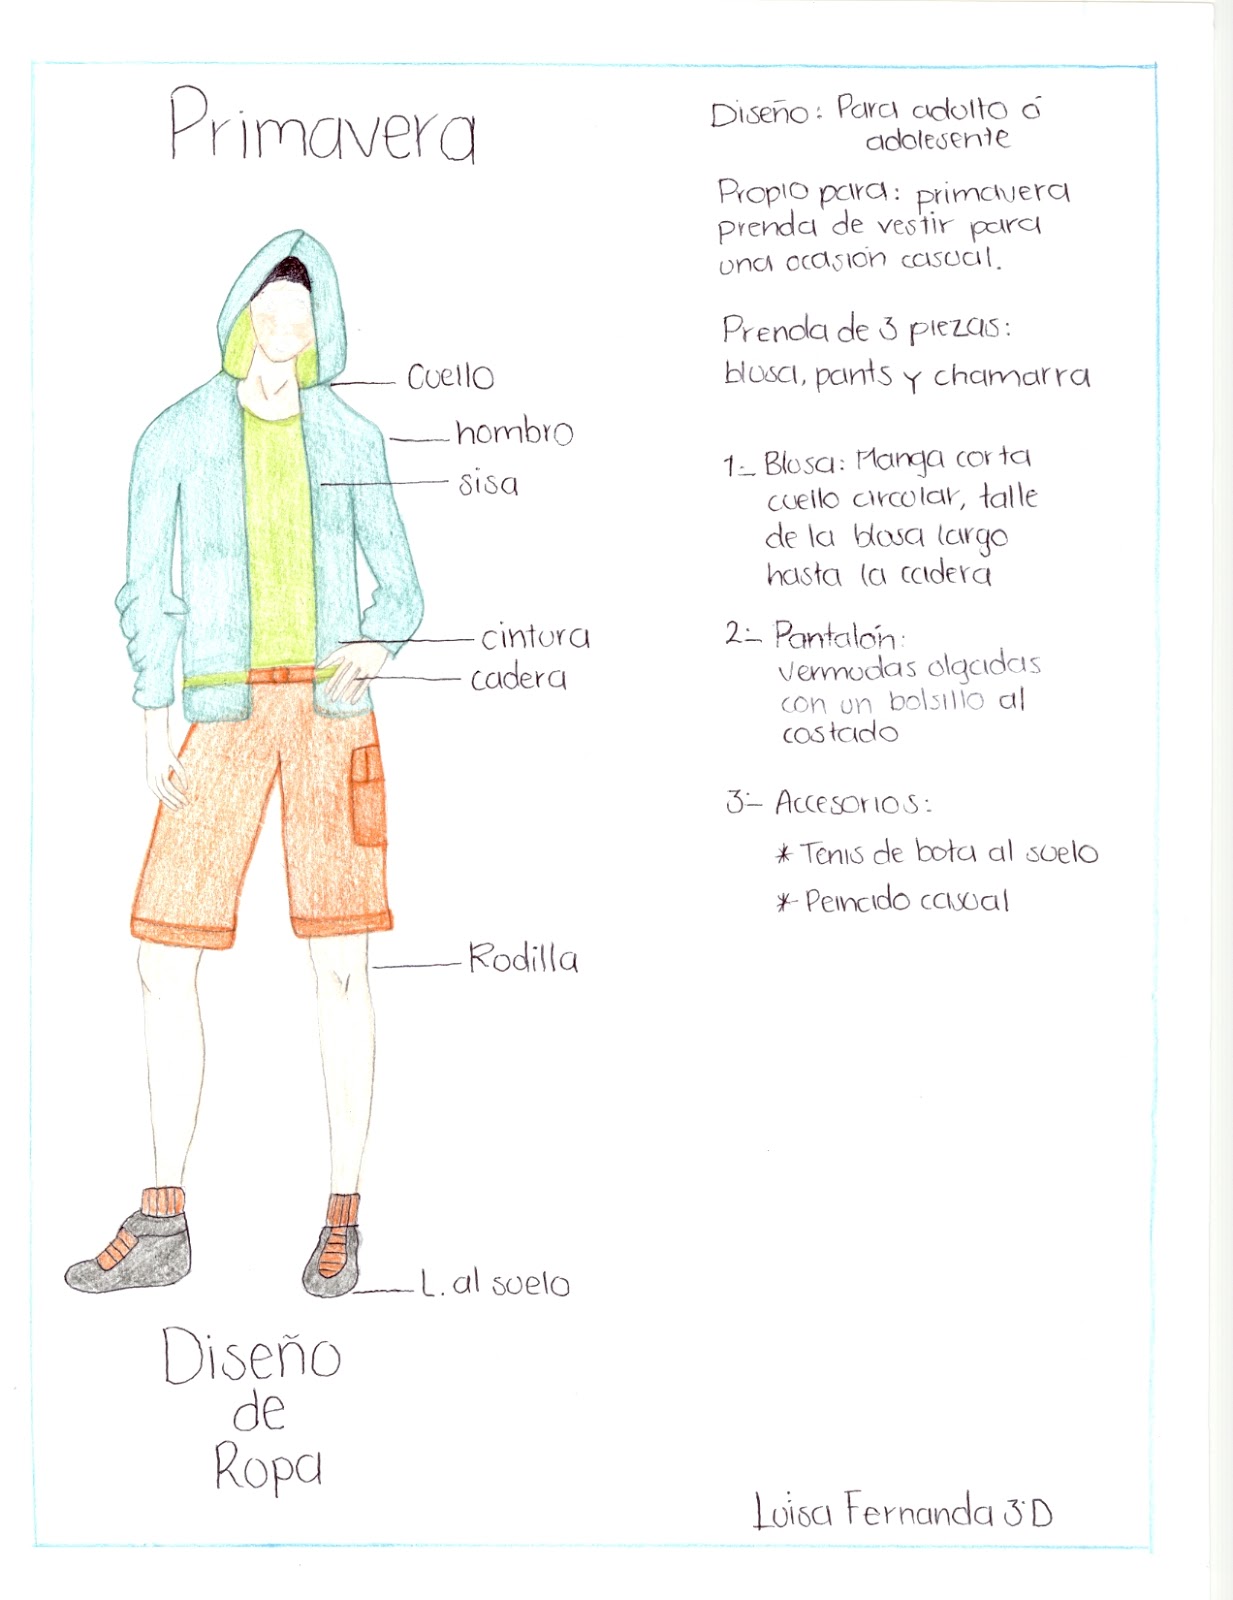 Primavera
Cuello
hombro
sisa
cintura
cadera
Rodilla
L. al suelo
Diseño
de
Ropa
Diseño: Para adulto ó
adolesente
Propio para: primavera
prenda de vestir para
una ocasión casual.
Prenda de 3 piezas:
blusa, pants y chamarra
1:- Blusa: Manga corta
cuello circular, talle
de la blusa largo
hasta la cadera
2:- Pantalón:
vermudas olgadas
con un bolsillo al
costado
3:- Accesorios:
* Tenis de bota al suelo
* Peinado casual
Luisa Fernanda 3°D